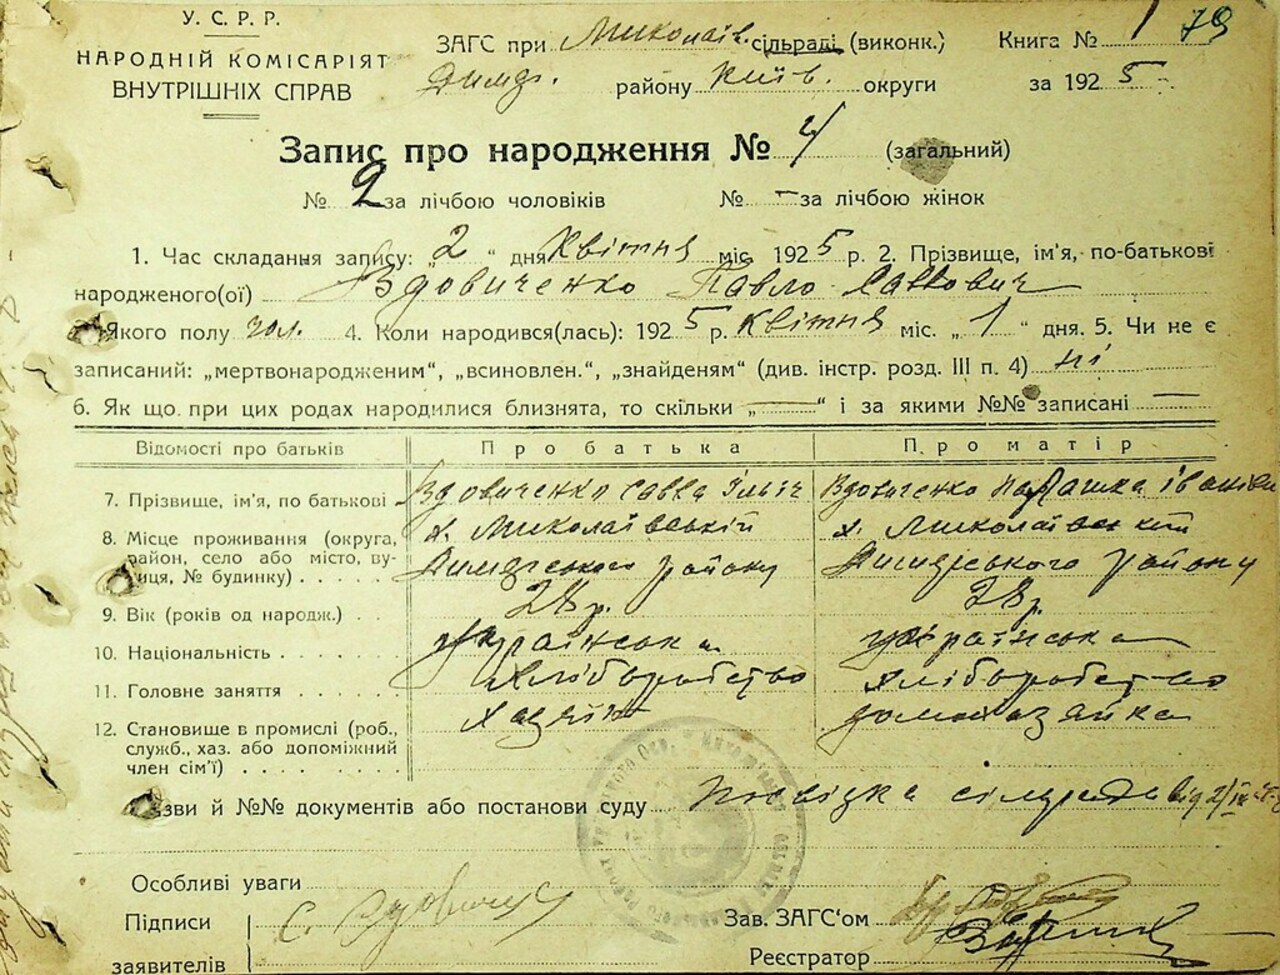 У. С. Р. Р.
НАРОДНІЙ КОМІСАРІЯТ
ВНУТРІШНІХ СПРАВ
ЗАГС при Миколаїв. сільраді (виконк.) Книга № 1 79
Димер. району Київ. округи за 1925
Запис про народження № 4 (загальний)
№ 2 за лічбою чоловіків № – за лічбою жінок
1. Час складання запису: „2“ дня Квітня міс. 1925 р. 2. Прізвище, ім'я, по-батькові
народженого(ої) Вдовиченко Павло Саввович
Якого полу чол. 4. Коли народився(лась): 1925 р. Квітня міс. „1“ дня. 5. Чи не є
записаний: „мертвонародженим“, „всиновлен.“, „знайденям“ (див. інстр. розд. III п. 4) ні
6. Як що при цих родах народилися близнята, то скільки „—“ і за якими №№ записані —
Відомості про батьків Про батька Про матір
7. Прізвище, ім'я, по батькові Вдовиченко Савва Ільіч Вдовиченко Палашка Іванівн
8. Місце проживання (округа, район, село або місто, ву-
лиця, № будинку) х. Миколаївській Димерського району х. Миколаївський Димерського району
9. Вік (років од народж.) 28 р. 28 р.
10. Національність українська українська
11. Головне заняття хліборобство хліборобство
12. Становище в промислі (роб., хазяїн домохазяйка
служб., хаз. або допоміжний
член сім'ї)
зви й №№ документів або постанови суду Посвідка сільради від 2/IV
Особливі уваги
Підписи
заявителів С. Вдовиченко
Зав. ЗАГС‘ом
Реєстратор